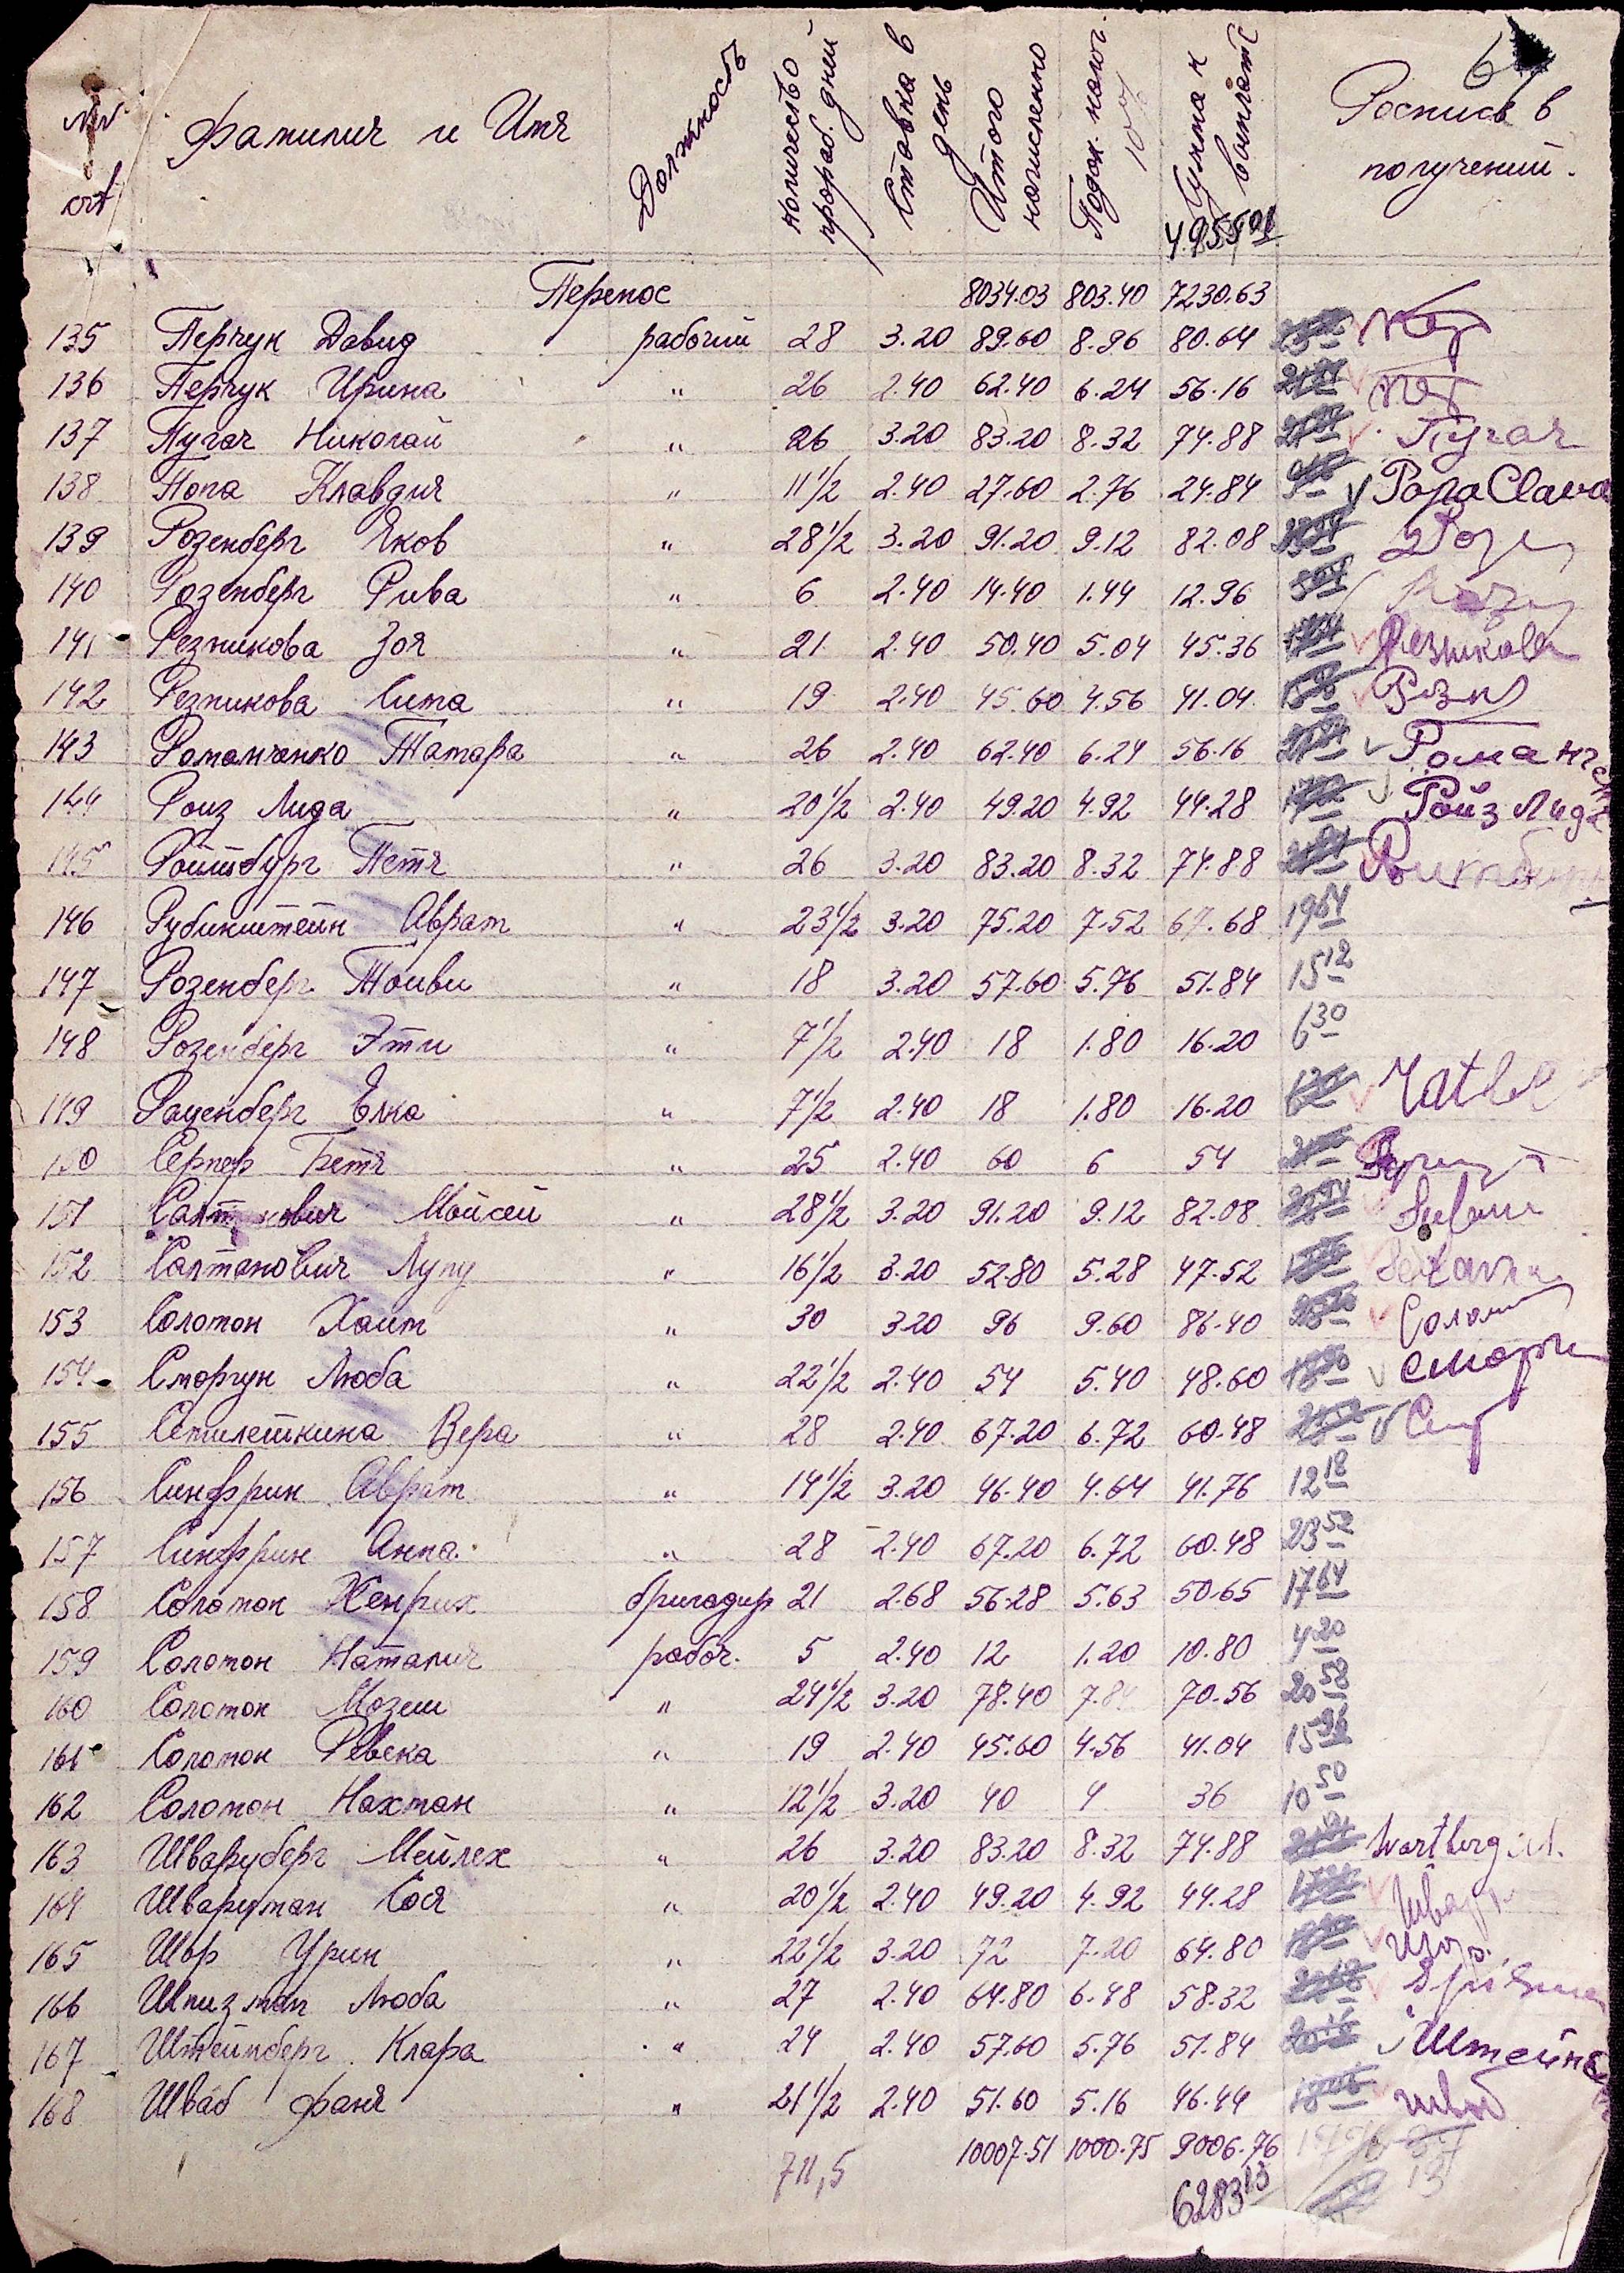 №№ п/п Фамилия и Имя Должность Количество прораб. дней Ставка в день Итого начисленно Подох. налог 10% Сумма к выплате Роспись в получений.
6
4.955 01
Перенос 8034.03 803.40 7230.63
135 Перчук Давид рабочий 28 3.20 89.60 8.96 80.64
136 Перчук Ирина " 26 2.40 62.40 6.24 56.16
137 Пугач Николай " 26 3.20 83.20 8.32 74.88 Пугач
138 Попа Клавдия " 11 1/2 2.40 27.60 2.76 24.84 Popa Clava
139 Розенберг Яков " 28 1/2 3.20 91.20 9.12 82.08
140 Розенберг Рива " 6 2.40 14.40 1.44 12.96
141 Резникова Зоя " 21 2.40 50.40 5.04 45.36 Резникова
142 Резникова Сима " 19 2.40 45.60 4.56 41.04 Резн
143 Романченко Тамара " 26 2.40 62.40 6.24 56.16 Романченко
144 Роиз Лида " 20 1/2 2.40 49.20 4.92 44.28 Ройз Лида
145 Ройтбург Петя " 26 3.20 83.20 8.32 74.88
146 Рубинштейн Аврам " 23 1/2 3.20 75.20 7.52 67.68 19 64
147 Розенберг Тойви " 18 3.20 57.60 5.76 51.84 15 12
148 Розенберг Эти " 7 1/2 2.40 18 1.80 16.20 6 30
149 Раценберг Елка " 7 1/2 2.40 18 1.80 16.20
150 Сернер Бетя " 25 2.40 60 6 54
151 Салтанович Мойсей " 28 1/2 3.20 91.20 9.12 82.08
152 Салтанович Лупу " 16 1/2 3.20 52.80 5.28 47.52
153 Соломон Хаим " 30 3.20 96 9.60 86.40 Соломон
154 Сморгун Люба " 22 1/2 2.40 54 5.40 48.60
155 Семилеткина Вера " 28 2.40 67.20 6.72 60.48
156 Синфрин Аврам " 14 1/2 3.20 46.40 4.64 41.76 12 18
157 Синфрин Анна " 28 2.40 67.20 6.72 60.48 23 52
158 Соломон Хенрих бригадир 21 2.68 56.28 5.63 50.65 17 64
159 Соломон Наталия рабоч. 5 2.40 12 1.20 10.80 4 20
160 Соломон Мозеш " 24 1/2 3.20 78.40 7.84 70.56 20 58
161 Соломон Ревека " 19 2.40 45.60 4.56 41.04 15 96
162 Соломон Нахман " 12 1/2 3.20 40 4 36 10 50
163 Шварцберг Мейлех " 26 3.20 83.20 8.32 74.88
164 Шварцман Сося " 20 1/2 2.40 49.20 4.92 44.28
165 Шор Урин " 22 1/2 3.20 72 7.20 64.80 Шор
166 Шпизман Люба " 27 2.40 64.80 6.48 58.32
167 Штейнберг Клара " 24 2.40 57.60 5.76 51.84 Штейнб
168 Шваб Фаня " 21 1/2 2.40 51.60 5.16 46.44 Шваб
711,5 10007.51 1000.75 9006.76
6283 13